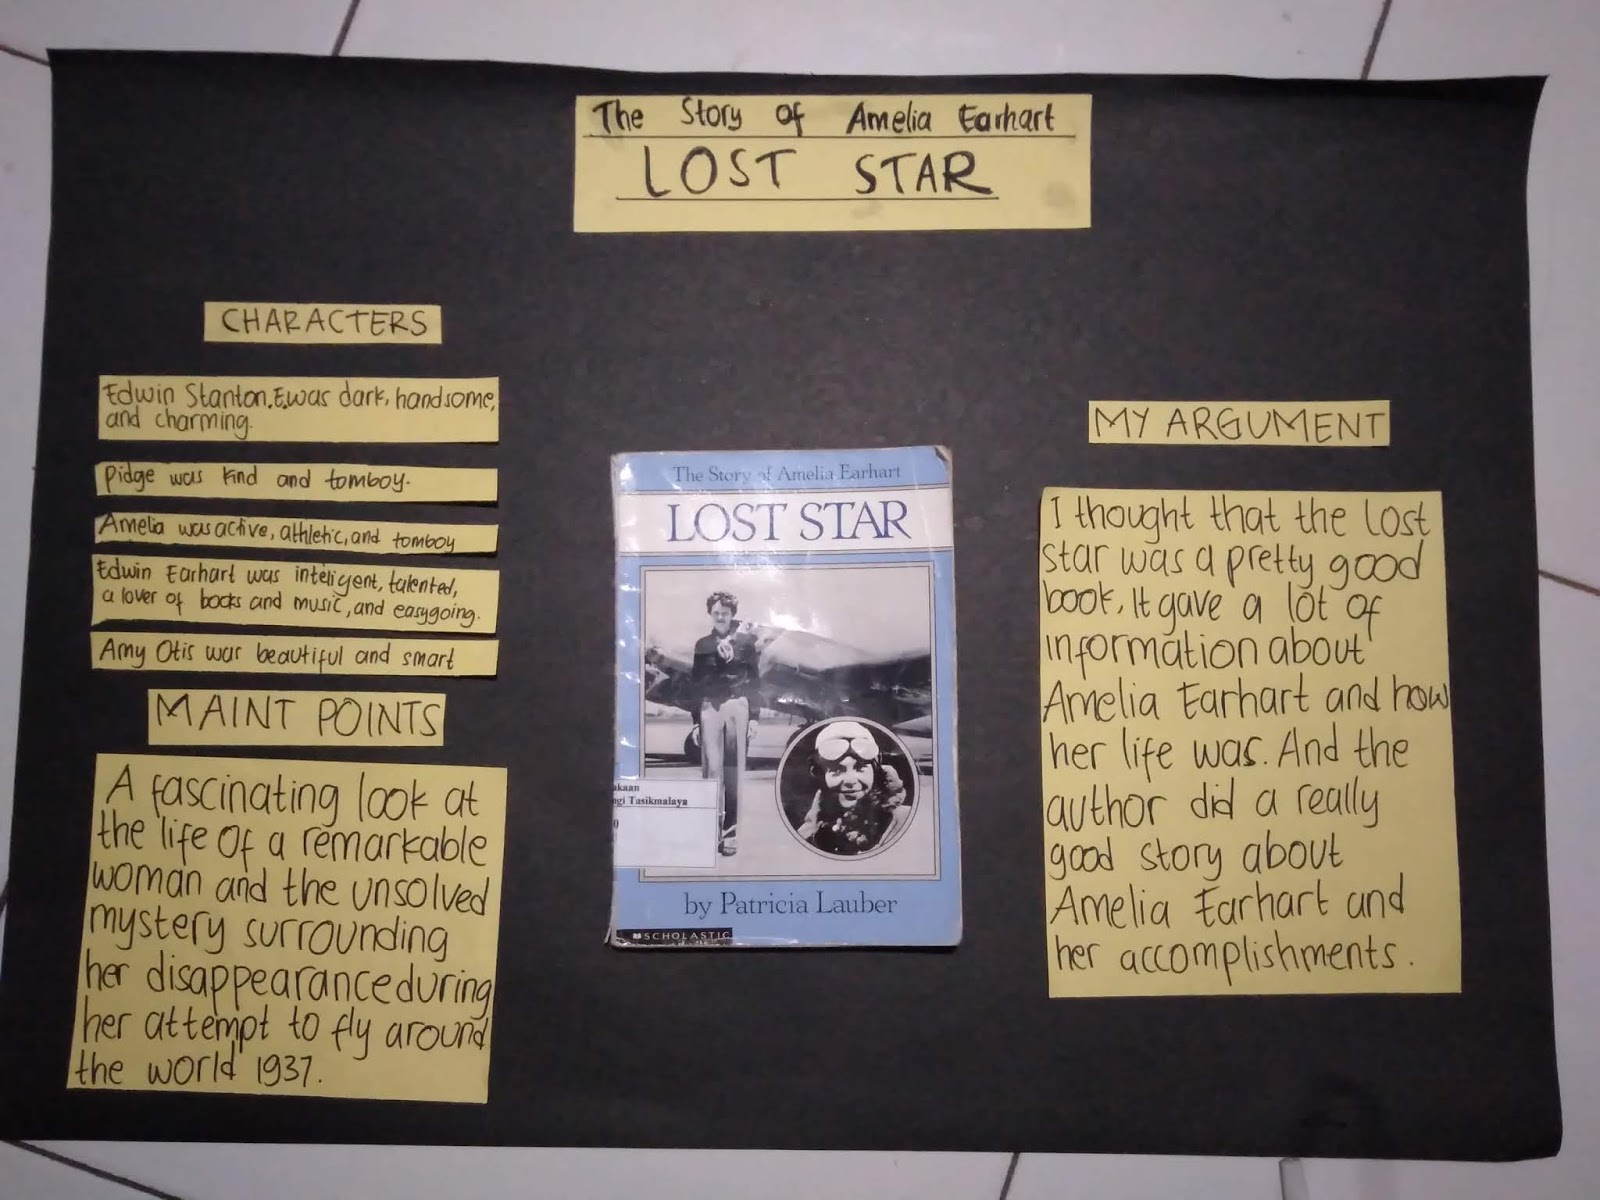 The Story of Amelia Earhart
LOST STAR
CHARACTERS
Edwin Stanton.E.was dark, handsome,
and charming.
Pidge was kind and tomboy.
Amelia was active, athletic, and tomboy
Edwin Earhart was inteligent, talented,
a lover of books and music, and easygoing.
Amy Otis was beautiful and smart
MAINT POINTS
A fascinating look at
the life of a remarkable
woman and the unsolved
mystery surrounding
her disappearance during
her attempt to fly around
the world 1937.
The Story of Amelia Earhart
LOST STAR
akaan
ngi Tasikmalaya
0
by Patricia Lauber
SCHOLASTIC
MY ARGUMENT
I thought that the lost
star was a pretty good
book, It gave a lot of
information about
Amelia Earhart and how
her life was. And the
author did a really
good story about
Amelia Earhart and
her accomplishments.